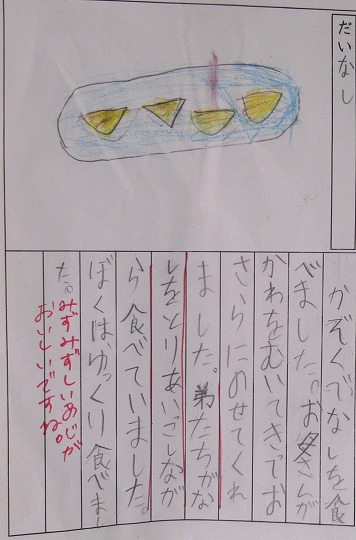 だいなし
かぞくでなしを食
べました。お父さんが
かわをむいてきってお
さらにのせてくれ
ました。弟たちがな
しをとりあいごしなが
ら食べていました。
ぼくはゆっくり食べまし
た。
みずみずしいあじが
おいしいですね。